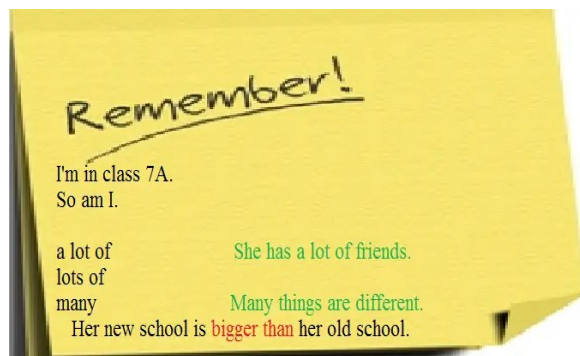 Remember!
I'm in class 7A.
So am I.
a lot of She has a lot of friends.
lots of
many Many things are different.
Her new school is bigger than her old school.